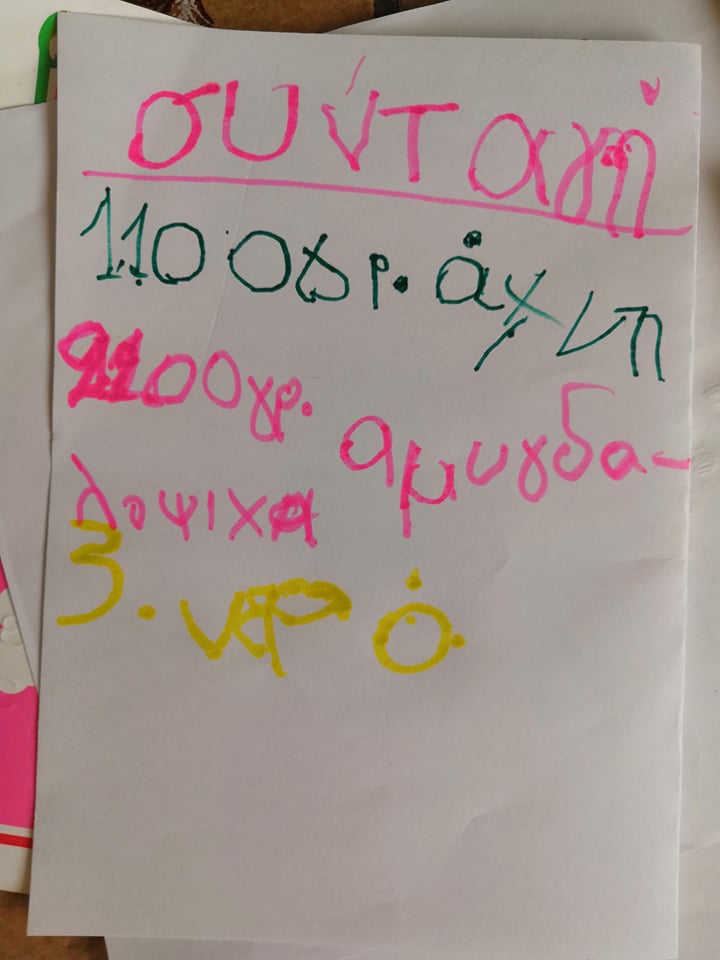 συνταγή
1.100γρ. άχνη
2.100γρ. αμυγδα-
λοψιχα
3. νερό